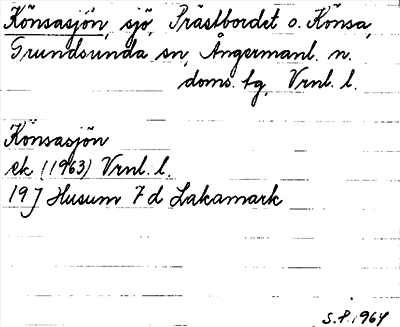 Könsasjön, sjö, Prästbordet o. Könsa,
Grundsunda sn, Ångermanl. n.
doms. tg, Vrnl. l.
Könsasjön
ek (1963) Vrnl. l.
19J Husum 7d Lakamark
S.P. 1964